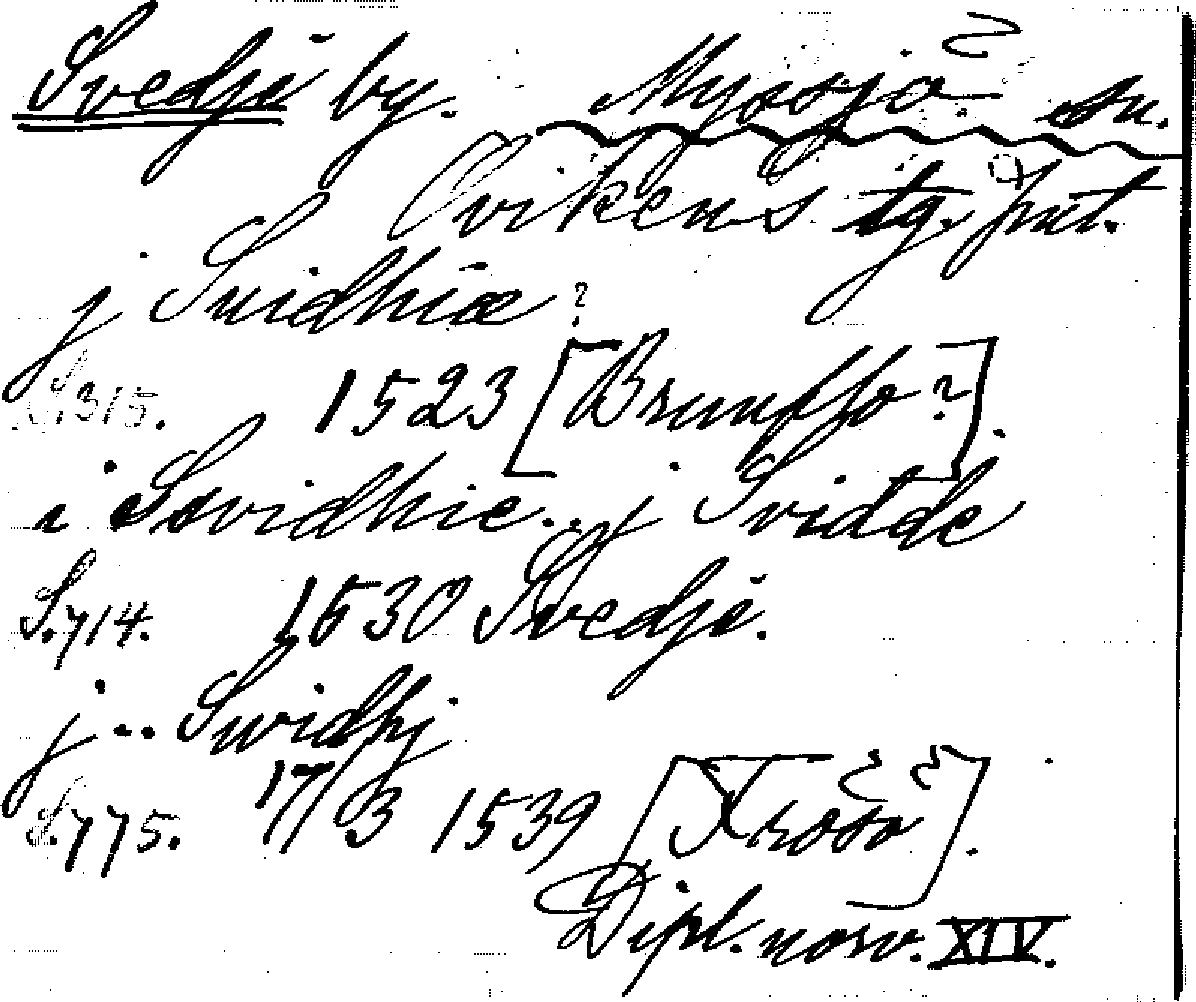 Svedje by. Myssjö sn.
Ovikens tg. Jmt.
j Suidhiæ?
S. 315. 1523 [Brunflo?].
i Swidhie. j Svidde
S. 714. 1530 Svedje.
j .. Swidhj
S. 775. 17/3 1539 [Frösö].
Dipl. norv. XIV.